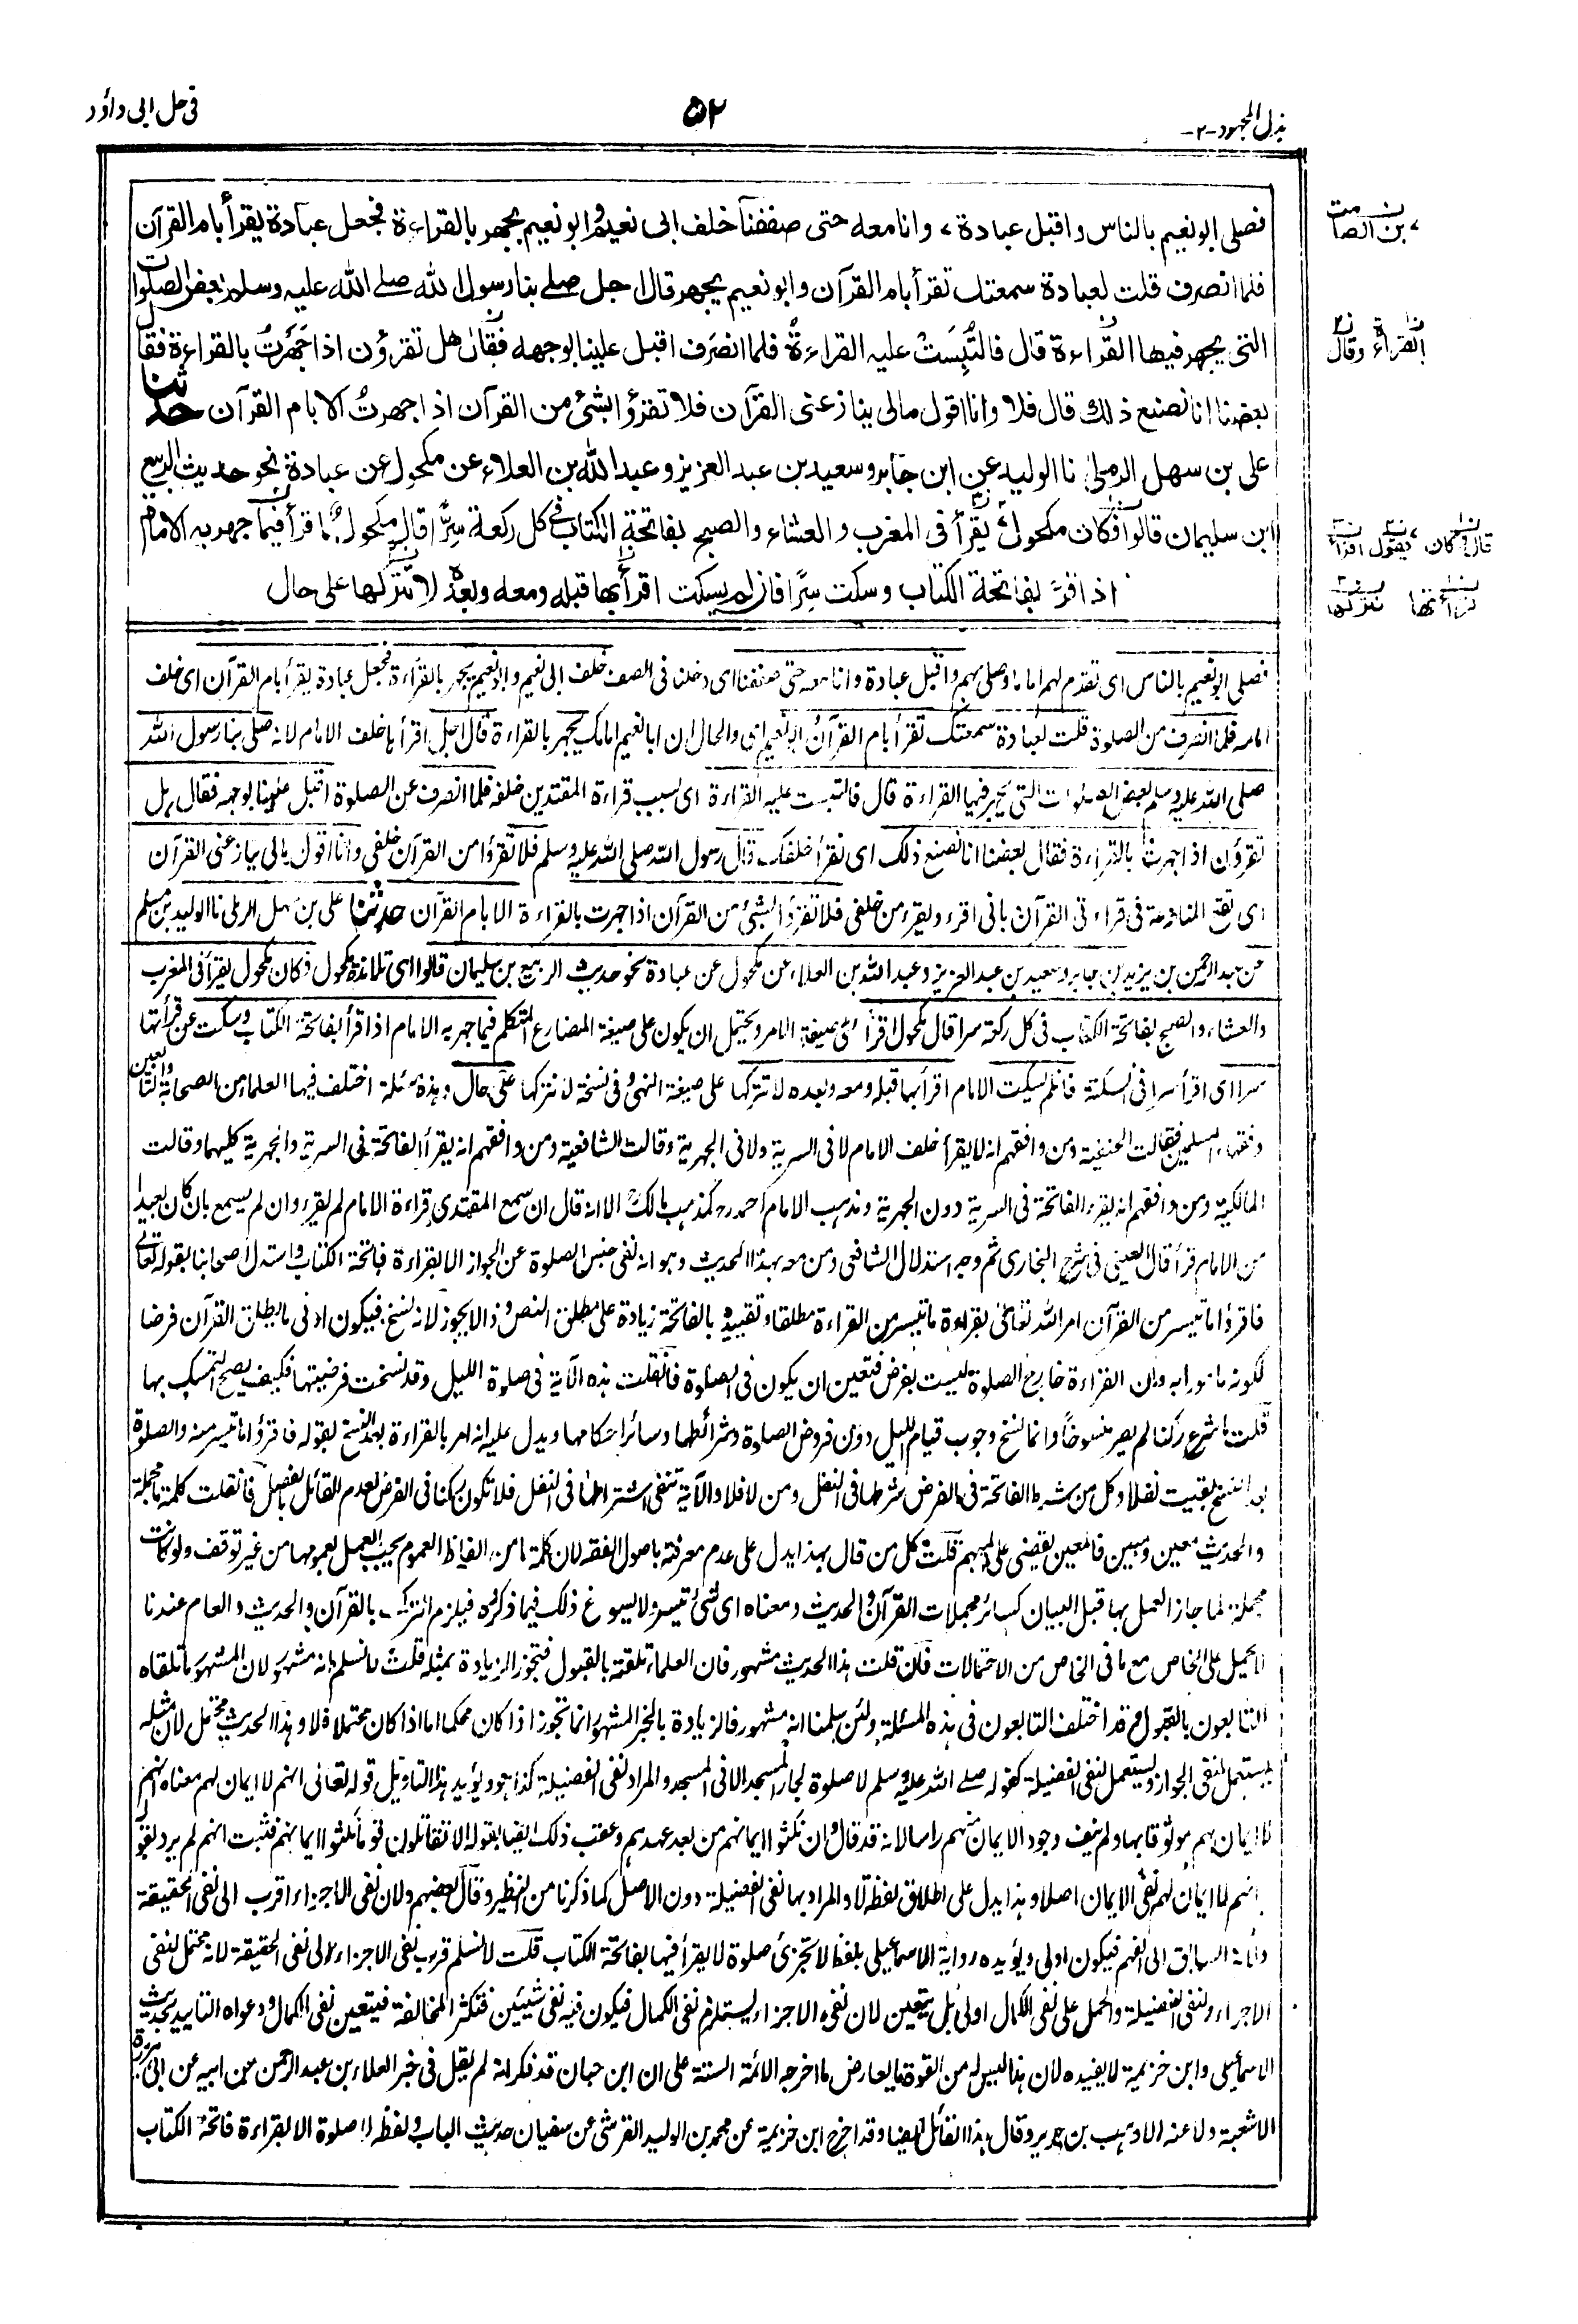 بذل المجهود -٢-
٥٢
فى حل ابى داؤد
فصلى ابو نعيم بالناس واقبل عبادة، وانا معه حتى صففنا خلف ابى نعيم وابو نعيم يجهر بالقراءة فجعل عبادة يقرأ بام القرآن
فلما انصرف قلت لعبادة سمعتك تقرأ بام القرآن وابو نعيم يجهر قال اجل صلے بنا رسول الله صلے الله عليه وسلم بعض الصلوات
التى يجهر فيها القراءة قال فالتبست عليه القراءة فلما انصرف اقبل علينا بوجهه فقال هل تقرؤن اذا جهرت بالقراءة فقال
بعضنا انا نصنع ذلك قال فلا وانا اقول مالى ينازعنى القرآن فلا تقرؤا بشئ من القرآن اذا جهرت الا بام القرآن حدثنا
على بن سهل الرملى نا الوليد عن ابن جابر وسعيد بن عبد العزيز وعبد الله بن العلاء عن مكحول عن عبادة نحو حديث الربيع
ابن سليمان قالوا فكان مكحول يقرأ فى المغرب والعشاء والصبح بفاتحة الكتاب فى كل ركعة سرًّا قال مكحول اقرأ فيما جهر به الامام
اذا قرأ بفاتحة الكتاب وسكت سرًّا فان لم يسكت اقرأ بها قبله ومعه وبعده لا تتركها على حال
، بن الصامت
القراءة وقال
قال فكان ، يقول اقرأ
قرأتها نتركها
فصلى ابو نعيم بالناس اى تقدم لهم اماما وصلى بهم واقبل عبادة وانا معه حتى صففنا اى دخلنا فى الصف خلف ابى نعيم وابو نعيم يجهر بالقراءة فجعل عبادة يقرأ بام القرآن اى خلف
امامه فلما انصرف من الصلوة قلت لعبادة سمعتك تقرأ بام القرآن وابو نعيم اى والحال ان ابا نعيم امامك يجهر بالقراءة قال اجل اقرأ بها خلف الامام لانه صلى بنا رسول الله
صلى الله عليه وسلم بعض الصلوات التى يجهر فيها القراءة قال فالتبست عليه القراءة اى بسبب قراءة المقتدين خلفه فلما انصرف عن الصلوة اقبل علينا بوجهه فقال هل
تقرؤن اذا جهرت بالقراءة فقال بعضنا انا نصنع ذلك اى نقرأ خلفك قال رسول الله صلى الله عليه وسلم فلا تقرؤا من القرآن خلفى وانا اقول مالى ينازعنى القرآن
اى تقع المنازعة فى قراءتى القرآن بانى اقرء ويقرء من خلفى فلا تقرؤا بشئ من القرآن اذا جهرت بالقراءة الا بام القرآن حدثنا على بن سهل الرملى نا الوليد بن مسلم
عن عبد الرحمن بن يزيد بن جابر وسعيد بن عبد العزيز وعبد الله بن العلاء عن مكحول عن عبادة نحو حديث الربيع بن سليمان قالوا اى تلامذة مكحول فكان مكحول يقرأ فى المغرب
والعشاء والصبح بفاتحة الكتاب فى كل ركعة سرا قال مكحول اقرأ على صيغة الامر ويحتمل ان يكون على صيغة المضارع المتكلم فيما جهر به الامام اذا قرأ بفاتحة الكتاب وسكت عن قرأتها
سرا اى اقرأ سرا فى السكتة فان لم يسكت الامام اقرأ بها قبله ومعه وبعده لا تتركها على صيغة النهى وفى نسخة لا نتركها على حال وهذه مسئلة اختلف فيها العلماء من الصحابة والتابعين
وفقهاء المسلمين فقالت الحنفية ومن وافقهم انه لا يقرأ خلف الامام لا فى السرية ولا فى الجهرية وقالت الشافعية ومن وافقهم انه يقرأ الفاتحة فى السرية والجهرية كليهما وقالت
المالكية ومن وافقهم انه يقرء الفاتحة فى السرية دون الجهرية ومذهب الامام احمد رح كمذهب مالك الا انه قال ان سمع المقتدى قراءة الامام لم يقرء وان لم يسمع بان كان بعيدا
من الامام قرأ قال العينى فى شرح البخارى ثم وجه استدلال الشافعى ومن معه بهذا الحديث وهو انه نفى جنس الصلوة عن الجواز الا بقراءة فاتحة الكتاب واستدل اصحابنا بقوله تعالى
فاقرؤا ما تيسر من القرآن امر الله تعالى بقراءة ما تيسر من القراءة مطلقا وتقييده بالفاتحة زيادة على مطلق النص وذا لا يجوز لانه نسخ فيكون ادنى ما يطلق القرآن فرضا
لكونه مامورا به وان القراءة خارج الصلوة ليست بفرض فتعين ان يكون فى الصلوة فان قلت هذه الآية فى صلوة الليل وقد نسخت فرضيتها فكيف يصح التمسك بها
قلت ما شرع ركنا لم يصر منسوخا وانما نسخ وجوب قيام الليل دون فروض الصلوة وشرائطها وسائر احكامها ويدل عليه انه امر بالقراءة بعد النسخ بقوله فاقرؤا ما تيسر منه والصلوة
بعد النسخ بقيت نفلا وكل من شرط الفاتحة فى الفرض شرطها فى النفل ومن لا فلا والآية تنفى اشتراطها فى النفل فلا تكون ركنا فى الفرض لعدم القائل بالفصل فان قلت كلمة ما مجملة
والحديث معين ومبين فالمعين يقضى على المبهم قلت كل من قال بهذا يدل على عدم معرفته باصول الفقه لان كلمة ما من الفاظ العموم يجب العمل بعمومها من غير توقف ولو كانت
مجملة لما جاز العمل بها قبل البيان كسائر مجملات القرآن والحديث ومعناه اى شئ تيسر ولا يسوغ ذلك فيما ذكروه فيلزم الترك بالقرآن والحديث والعام عندنا
لا يحمل على الخاص مع ما فى الخاص من الاحتمالات فان قلت هذا الحديث مشهور فان العلماء تلقته بالقبول فتجوز الزيادة بمثله قلت لا نسلم انه مشهور لان المشهور ما تلقاه
التابعون بالقبول وقد اختلف التابعون فى هذه المسئلة ولئن سلمنا انه مشهور فالزيادة بالخبر المشهور انما تجوز اذا كان محكما اما اذا كان محتملا فلا وهذا الحديث محتمل لان مثله
يستعمل لنفى الجواز ويستعمل لنفى الفضيلة كقوله صلے الله عليه وسلم لا صلوة لجار المسجد الا فى المسجد والمراد نفى الفضيلة كذا هو ويؤيد هذا التاويل قوله تعالى انهم لا ايمان لهم معناه انهم
لا ايمان لهم موثوقا بها ولم ينف وجود الايمان منهم راسا لانه قد قال وان نكثوا ايمانهم من بعد عهدهم وعقب ذلك ايضا بقوله الا تقاتلون قوما نكثوا ايمانهم فثبت انهم لم يرد بقوله
انهم لا ايمان لهم نفى الايمان اصلا وهذا يدل على اطلاق لفظة لا والمراد بها نفى الفضيلة دون الاصل كما ذكرنا من النظير وقال بعضهم ولان نفى الاجزاء اقرب الى نفى الحقيقة
ولانه السابق الى الفهم فيكون اولى ويؤيده رواية الاسماعيلى بلفظ لا تجزئ صلوة لا يقرأ فيها بفاتحة الكتاب قلت لا نسلم قرب نفى الاجزاء الى نفى الحقيقة لانه محتمل لنفى
الاجزاء ولنفى الفضيلة والحمل على نفى الكمال اولى بل يتعين لان نفى الاجزاء يستلزم نفى الكمال فيكون فيه نفى شيئين فتكثر المخالفة فيتعين نفى الكمال ودعواه التاييد بحديث
الاسماعيلى وابن خزيمة لا يفيده لان هذا ليس له من القوة ما يعارض ما اخرجه الائمة الستة على ان ابن حبان قد ذكر انه لم يقل فى خبر العلاء بن عبد الرحمن عن ابيه عن ابى هريرة
الا شعبة ولا عنه الا وهب بن جرير وقال هذا القائل ايضا وقد اخرج ابن خزيمة عن محمد بن الوليد القرشى عن سفيان حديث الباب ولفظه لا صلوة الا بقراءة فاتحة الكتاب